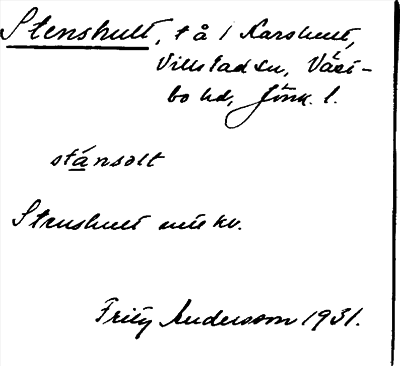 Stenshult, t å i Karshult,
Villstad sn, Väst-
bo hd, Jönk. l.
stánsolt
Stenshult utk kv.
Fritz Andersson 1931.